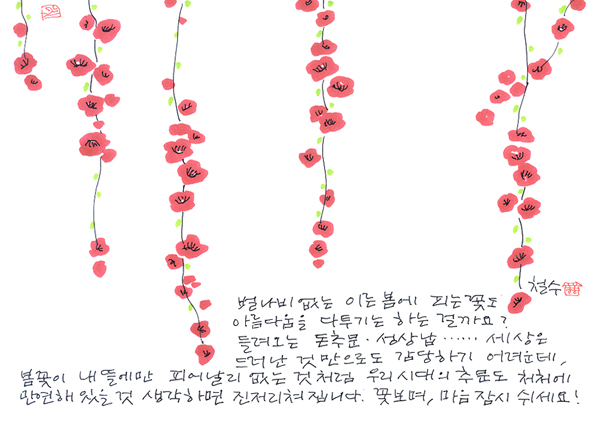 철수
벌나비 없는 이른봄에 피는꽃도
아름다움을 다투기는 하는 걸까요?
들려오는 돈추문·성상납…… 세상은
드러난 것 만으로도 감당하기 어려운데,
봄꽃이 내 뜰에만 피어날리 없는 것처럼 우리시대의 추문도 처처에
만연해 있을것 생각하면 진저리쳐집니다. 꽃보며, 마음 잠시 쉬세요!